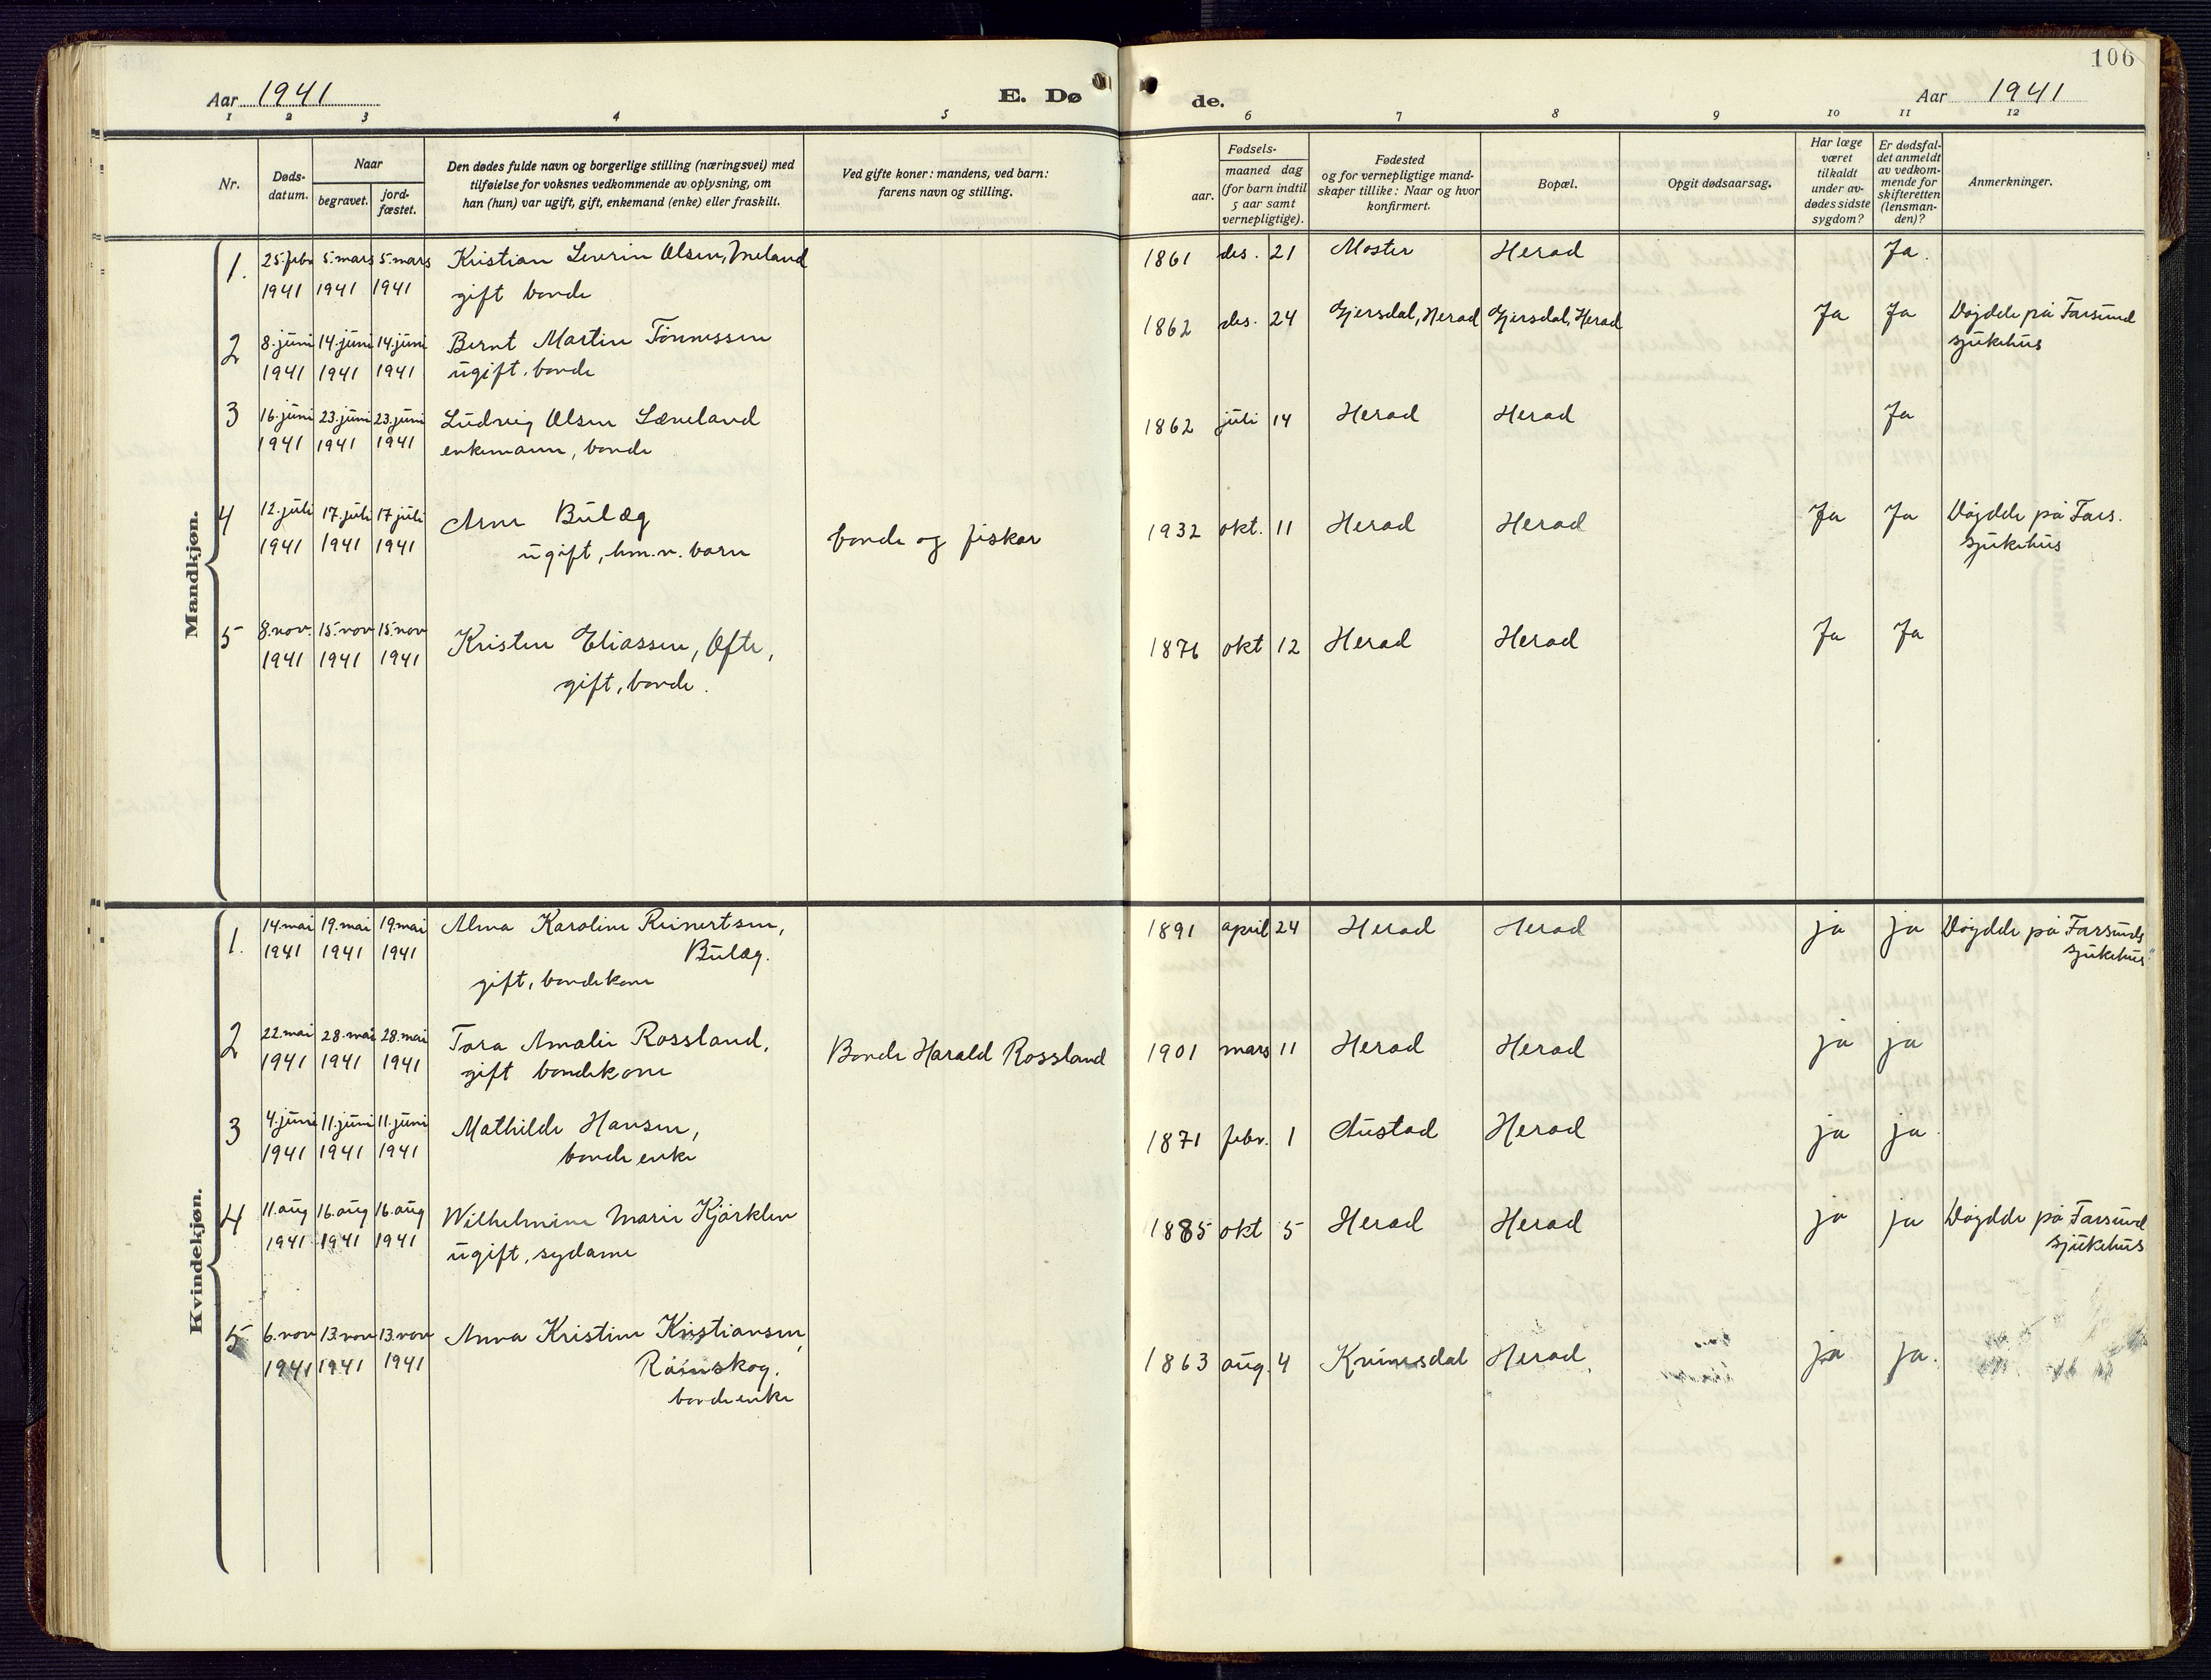 106
Aar 1941 E. Dø de. Aar 1941
1 2 3 4 5 6 7 8 9 10 11 12
Nr.
Døds-
datum.
Naar
begravet.
jord-
fæstet.
Den dødes fulde navn og borgerlige stilling (næringsvei) med
tilføielse for voksnes vedkommende av oplysning, om
han (hun) var ugift, gift, enkemand (enke) eller fraskilt.
Ved gifte koner: mandens, ved barn:
farens navn og stilling.
Fødsels-
aar.
maaned dag
(for barn indtil
5 aar samt
vernepligtige).
Fødested
og for vernepligtige mand-
skaper tillike: Naar og hvor
konfirmert.
Bopæl.
Opgit dødsaarsag.
Har læge
været
tilkaldt
under av-
dødes sidste
sygdom?
Er dødsfal-
det anmeldt
av vedkom-
mende for
skifteretten
(lensman-
den)?
Anmerkninger.
Mandkjøn.
1. 25. febr 5. mars 5. mars Kristian Severin Olsen, Meland 1861 des. 21 Moster Herad Ja.
1941 1941 1941 gift bonde
2 8. juni 14. juni 14. juni Bernt Martin Tønnessen 1862 des. 24 Gjersdal, Herad Gjersdal, Herad Ja Ja Døydde på Farsund
1941 1941 1941 ugift. bonde sjukehus
3 16. juni 23. juni 23. juni Ludvig Olsen Sæveland 1862 juli 14 Herad Herad Ja
1941 1941 1941 enkemann, bonde
4 12. juli 17. juli 17 juli Arne Bulæg 1932 okt. 11 Herad Herad Ja Ja Døydde på Fars.
1941 1941 1941 ugift, hm.v. barn bonde og fiskar sjukehus
5 8. nov. 15. nov 15. nov Kristen Eliassen, Ofte, 1876 okt 12 Herad Herad Ja Ja
1941 1941 1941 gift, bonde.
Kvindekjøn.
1. 14. mai 19. mai 19. mai Alma Karoline Reinertsen, 1891 april 24 Herad Herad ja ja Døydde på Farsunds
1941 1941 1941 Bulæg. sjukehus
gift, bondekone
2 22. mai 28. mai 28. mai Tora Amalie Rossland, Bonde Harald Rossland 1901 mars 11 Herad Herad ja ja
1941 1941 1941 gift bondekone
3 4. juni 11. juni 11. juni Mathilde Hansen, 1871 febr. 1 Austad Herad ja ja
1941 1941 1941 bonde enke
4 11. aug 16. aug 16. aug Wilhelmine Marie Kjørklev 1885 okt 5 Herad Herad ja ja Døydde på Farsund
1941 1941 1941 ugift, sydame sjukehus
5 6. nov 13. nov 13. nov Anna Kristine Kristiansen, 1863 aug. 4 Kvinesdal Herad ja ja.
1941 1941 1941 Røinskog.
bonde enke